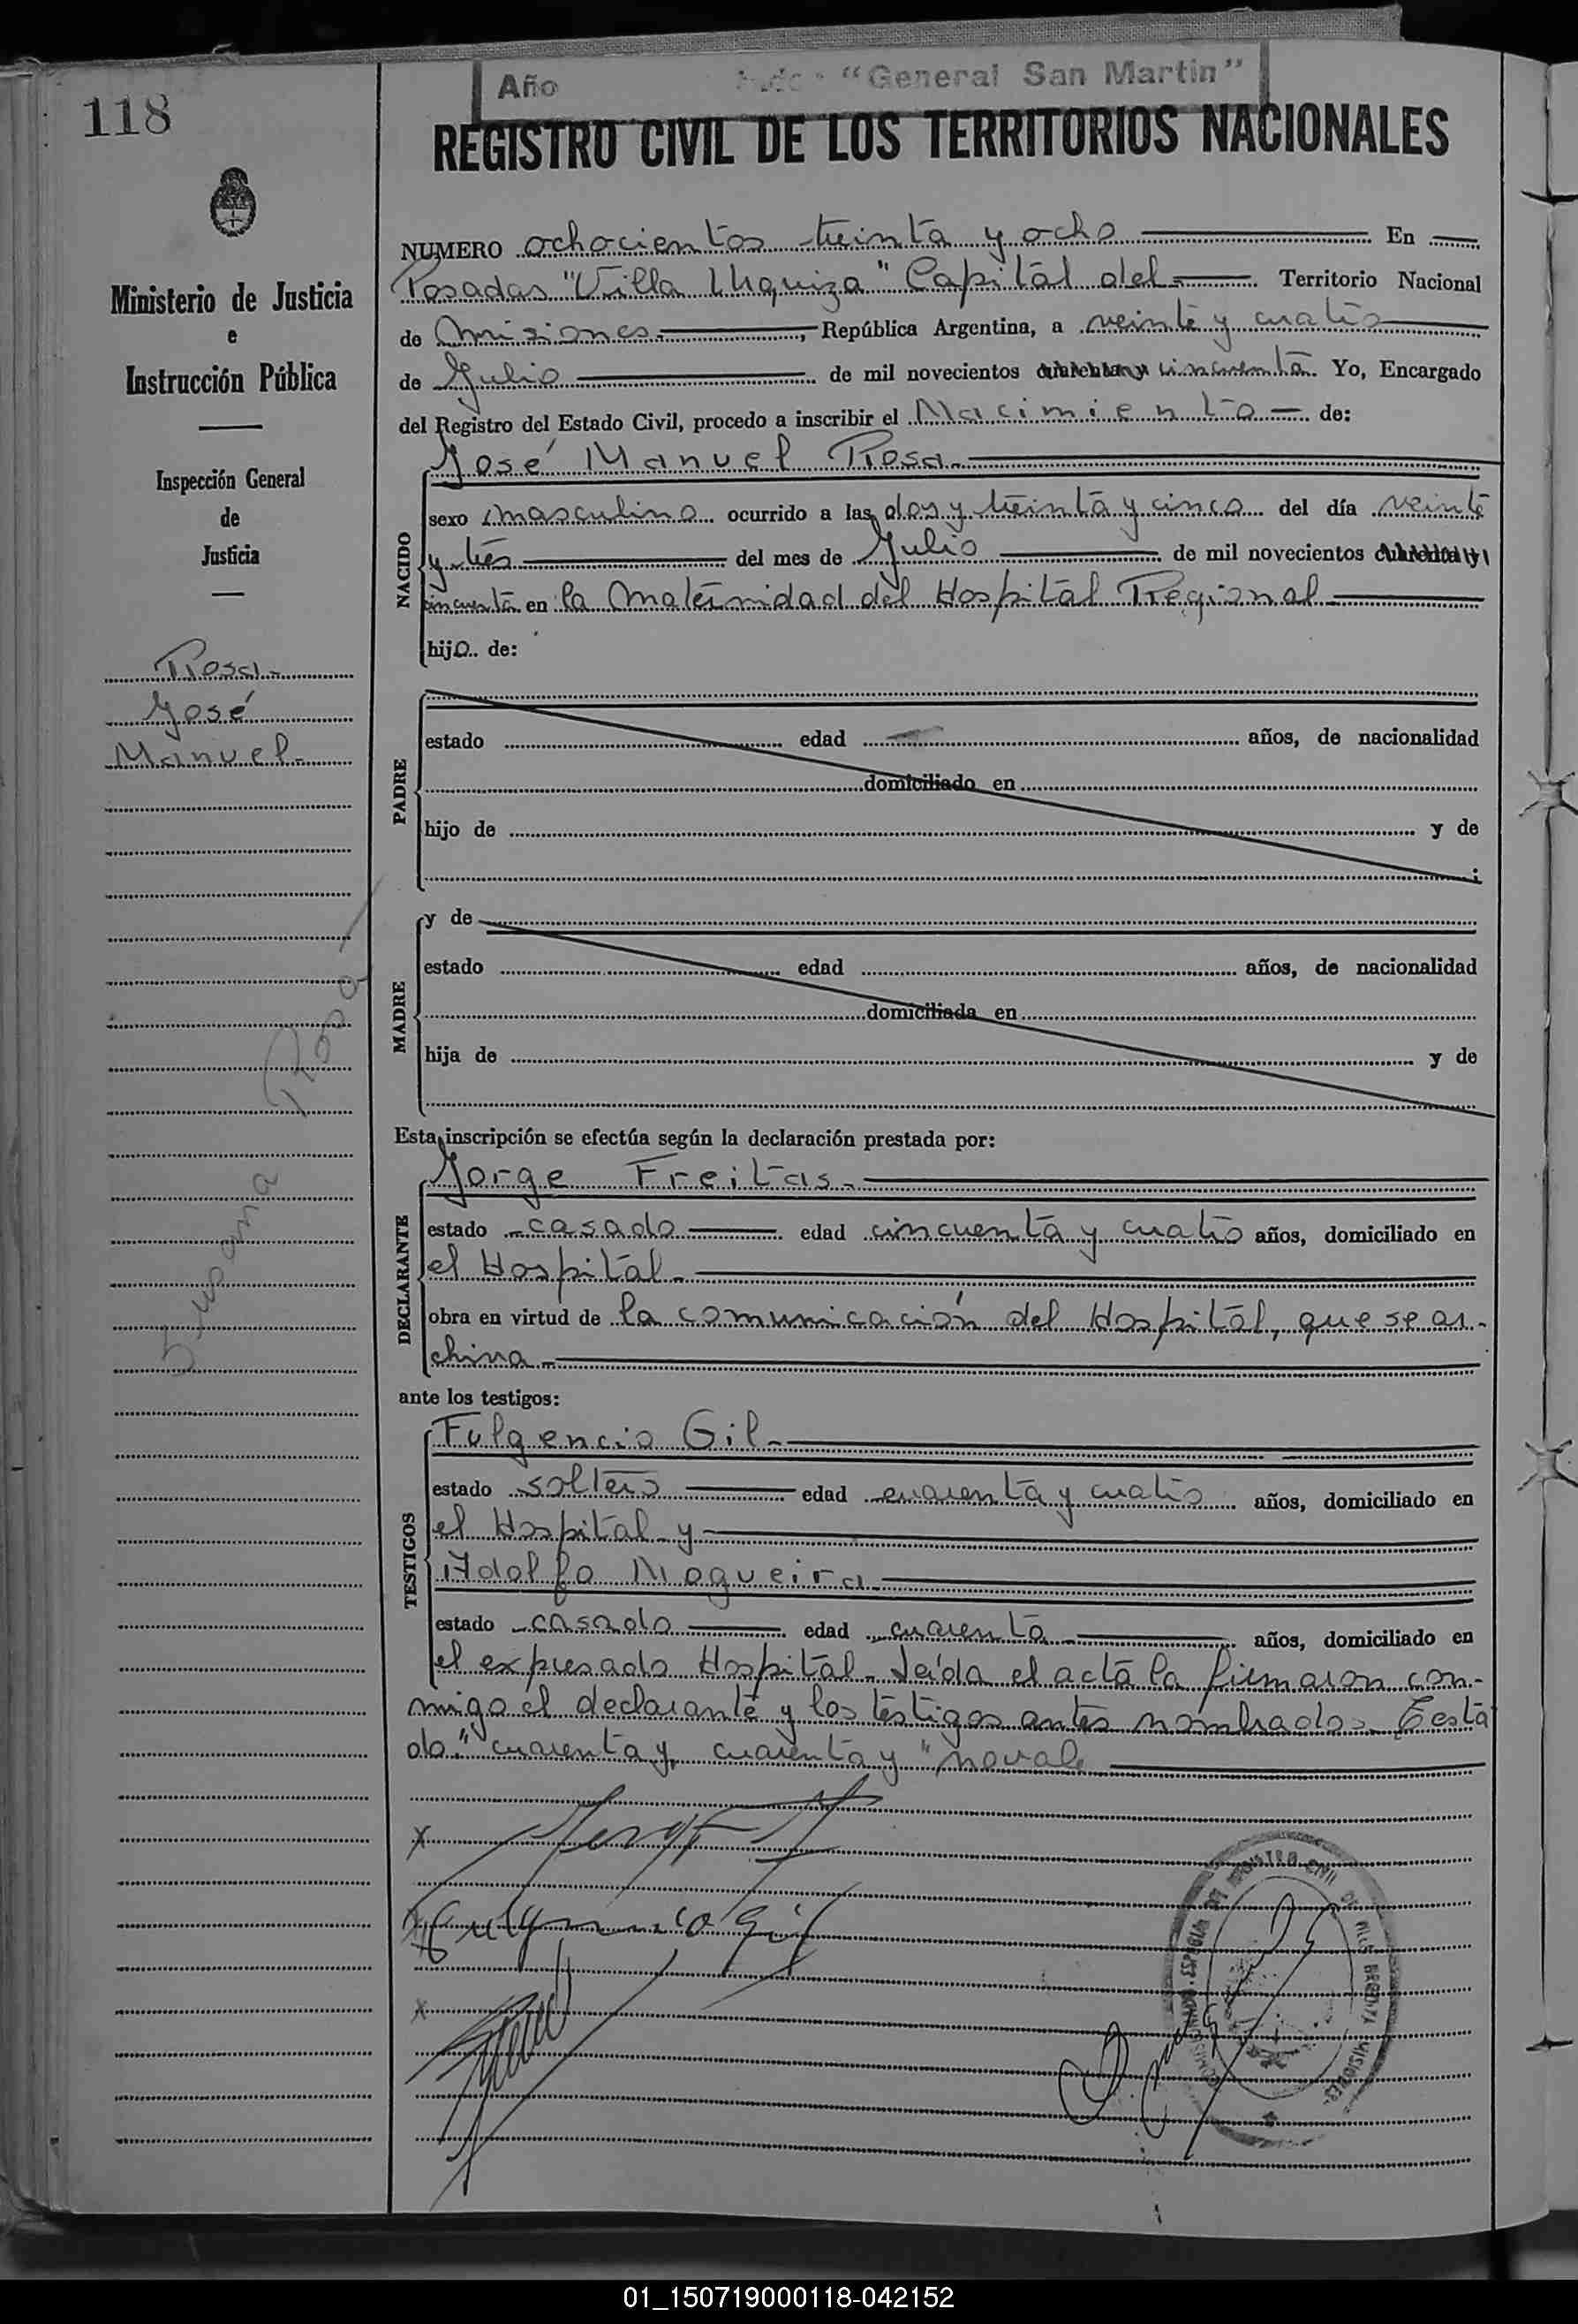 118
Año "General San Martin"
REGISTRO CIVIL DE LOS TERRITORIOS NACIONALES
Ministerio de Justicia
e
Instrucción Pública
Inspección General
de
Justicia
Rosa-
José
Manuel-
Rosa
Susana
NUMERO ochocientos treinta y ocho En
Posadas "Villa Urquiza" Capital del Territorio Nacional
de Misiones, República Argentina, a veinte y cuatro
de Julio de mil novecientos cuarenta y cincuenta. Yo, Encargado
del Registro del Estado Civil, procedo a inscribir el Nacimiento — de:
José Manuel Rosa-
NACIDO
sexo masculino ocurrido a las dos y treinta y cinco del día veinte
y tres del mes de Julio de mil novecientos cuarenta y
cincuenta en la Maternidad del Hospital Regional
hijo de:
PADRE
estado edad años, de nacionalidad
domiciliado en
hijo de y de
;
MADRE
y de
estado edad años, de nacionalidad
domiciliada en
hija de y de
Esta inscripción se efectúa según la declaración prestada por:
Jorge Freitas-
DECLARANTE
estado casado edad cincuenta y cuatro años, domiciliado en
el Hospital-
obra en virtud de la comunicación del Hospital, que se ar-
chiva-
ante los testigos:
Fulgencio Gil-
TESTIGOS
estado soltero edad cuarenta y cuatro años, domiciliado en
el Hospital y
Adolfo Nogueira-
estado casado edad cuarenta años, domiciliado en
el expresado Hospital- Leída el acta la firmaron con-
migo el declarante y los testigos antes nombrados. Testa
do: "cuarenta y, cuarenta y" no vale
x
x Fulgencio Gil
x
REGISTRO CIVIL DE MISIONES
01_150719000118-042152